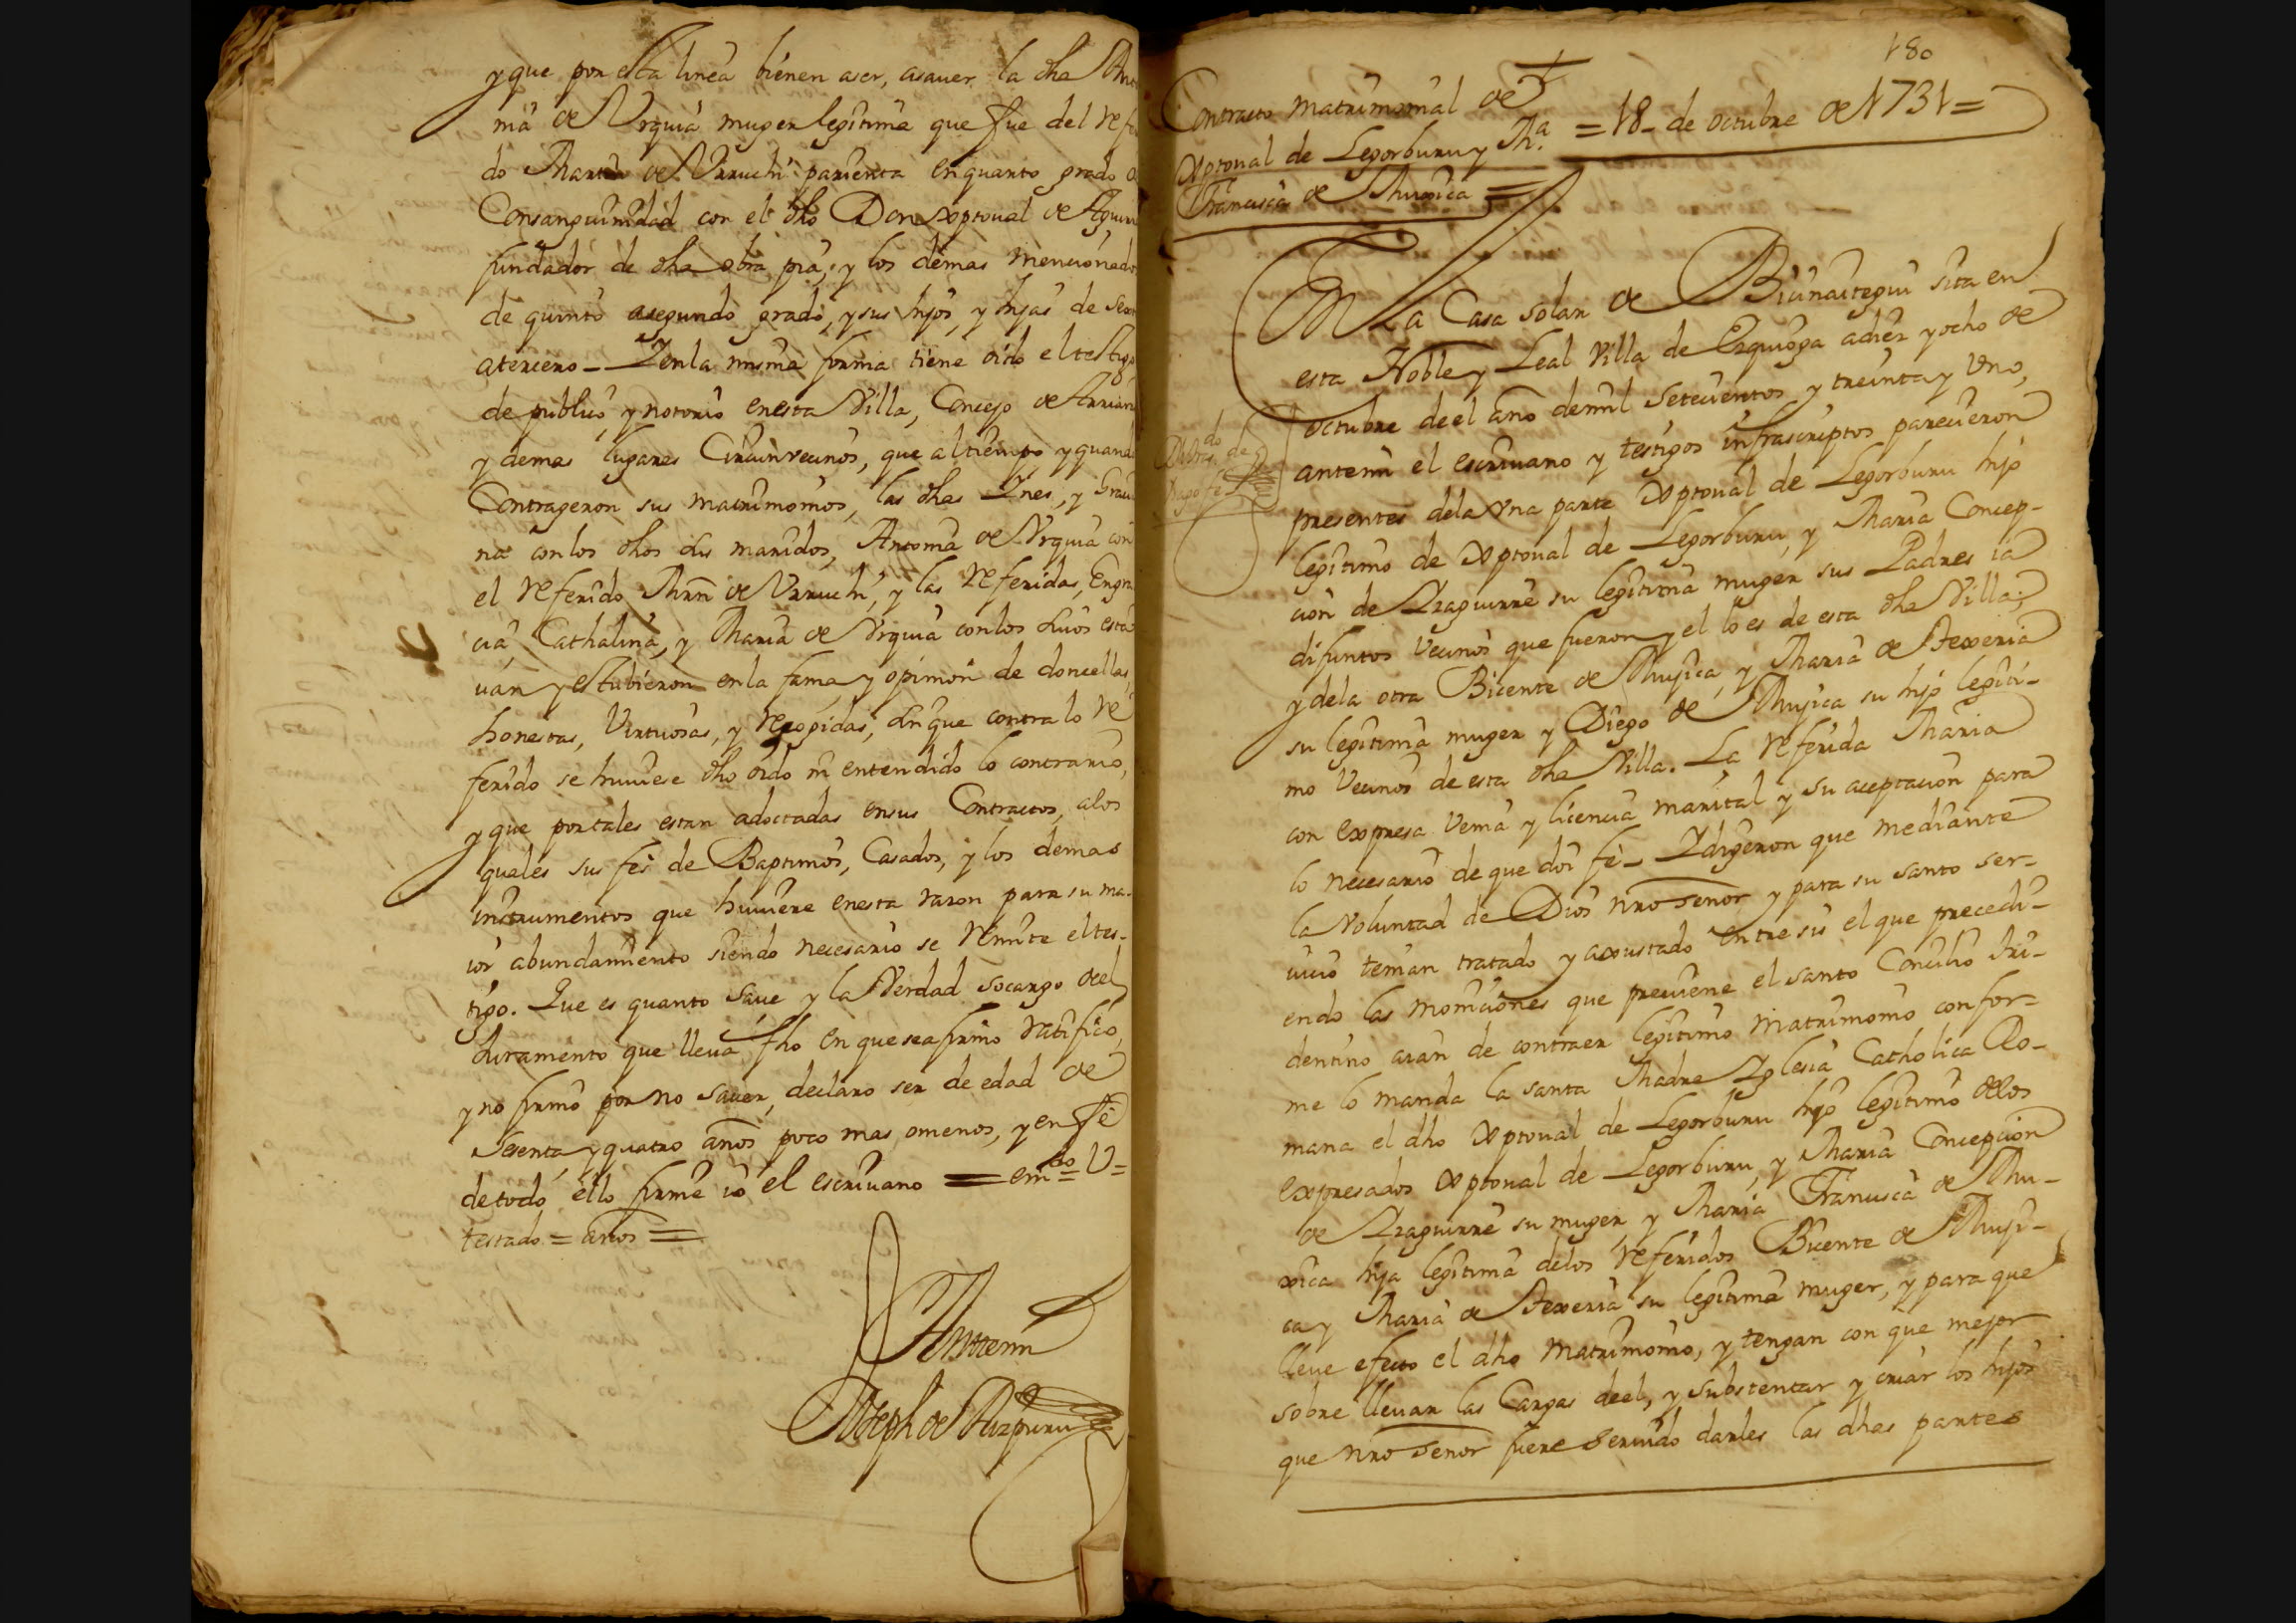 y que por esta linea bienen aser, asauer la dha Anto
nia de Vrquia muger legitima que fue del refe
do Martin de Vrruchi parienta en quarto grado de
Consanguinidad con el dho Don Xptoual de Aguirre
fundador de dha obra pia, y los demas mencionados
de quinto asegundo grado, y sus hijos, y hijas de sexto
atercero _ Y en la misma forma tiene oido el testigo
de publico, y notorio en esta Villa, Concejo de Arriaran
y demas lugares Circunvecinos, que al tiempo y quando
Contrageron sus matrimonios, las dhas Ynes, y Gracia
na con los dhos sus maridos, Antonia de Vrquia con
el referido Mrn de Vrruchi, y las referidas, Engra
cia Cathalina, y Maria de Vrquia con los suios esta
uan y estubieron en la fama, y opinion de doncellas,
honestas, Virtuosas, y recogidas, sin que contra lo re
ferido se huuiese dho oido ni entendido lo contrario,
y que por tales estan adoctadas en sus Contractos, alos
quales sus fes de Baptimos, Casados, y los demas
instrumentos que huuiere en esta razon para su ma-
ior abundamiento siendo necesario se remite el tes-
tigo. Que es quanto saue y la Verdad socargo del
Juramento que lleua fho en que se afirmo ratifico,
y no firmo por no sauer, declaro ser de edad de
sesenta y quatro años poco mas, omenos, y en fe
de todo ello firme io el escriuano = em.do = V =
testado = años =
Antemi
Joseph de Aizpuru
180
Contracto matrimonial de
Xptoual de Legorburu y Ma.
Francisca de Muxica =
= 18 - de octubre de 1731 =
En La Casa solar de Bicinaitegui sita en
esta Noble y Leal Villa de Ezquioga adiez y ocho de
octubre de el año de mil setecientos y treinta y Vno,
antemi el escriuano y testigos infrascriptos parecieron
presentes dela vna parte Xptoual de Legorburu hijo
legitimo de Xptoual de Legorburu, y Maria Concep-
cion de Yraguirre su legitima muger sus Padres ia
difuntos Vecinos que fueron y el lo es de esta dha Villa;
y dela otra Bicente de Mujica, y Maria de Atexeria
su legitima muger y Diego de Mujica su hijo legiti-
mo Vecinos de esta dha Villa. La referida Maria
con expresa Venia y licencia marital y su aceptacion para
lo necesario de que doi fe _ Y digeron que mediante
la Voluntad de Dios nro señor y para su santo ser-
uicio tenian tratado y axustado entre sis el que precedi-
endo las moniciones que preuiene el santo Concilio tri-
dentino aian de contraer legitimo matrimonio confor-
me lo manda la santa Madre Yglesia Catholica Ro-
mana el dho Xptoual de Legorburu hijo legitimo delos
expresados Xptoual de Legorburu, y Maria Concepcion
de Yraguirre su muger, y Maria Francisca de Mu-
xica hija legitima delos referidos Bicente de Muji-
ca y Maria de Atexeria su legitima muger, y para que
lleue efecto el dho Matrimonio, y tengan con que mejor
sobre lleuar las Cargas deel, y substentar y criar los hijos
que nro señor fuere seruido darles las dhas partes